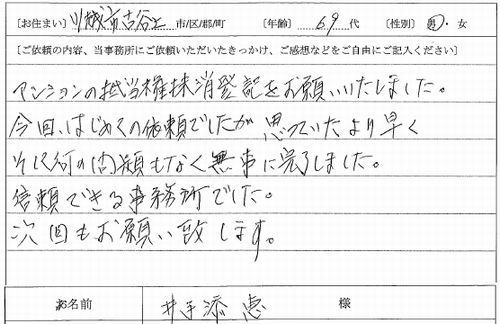 [お住まい] 川越市古谷上 市/区/郡/町 [年齢] 69 代 [性別] 男・女
[ご依頼の内容、当事務所にご依頼いただいたきっかけ、ご感想などをご自由にご記入ください]
マンションの抵当権抹消登記をお願いいたしました。
今回、はじめての依頼でしたが思っていたより早く
それ何の問題もなく無事に完了しました。
信頼できる事務所でした。
次回もお願い致します。
お名前 井手添 恵 様